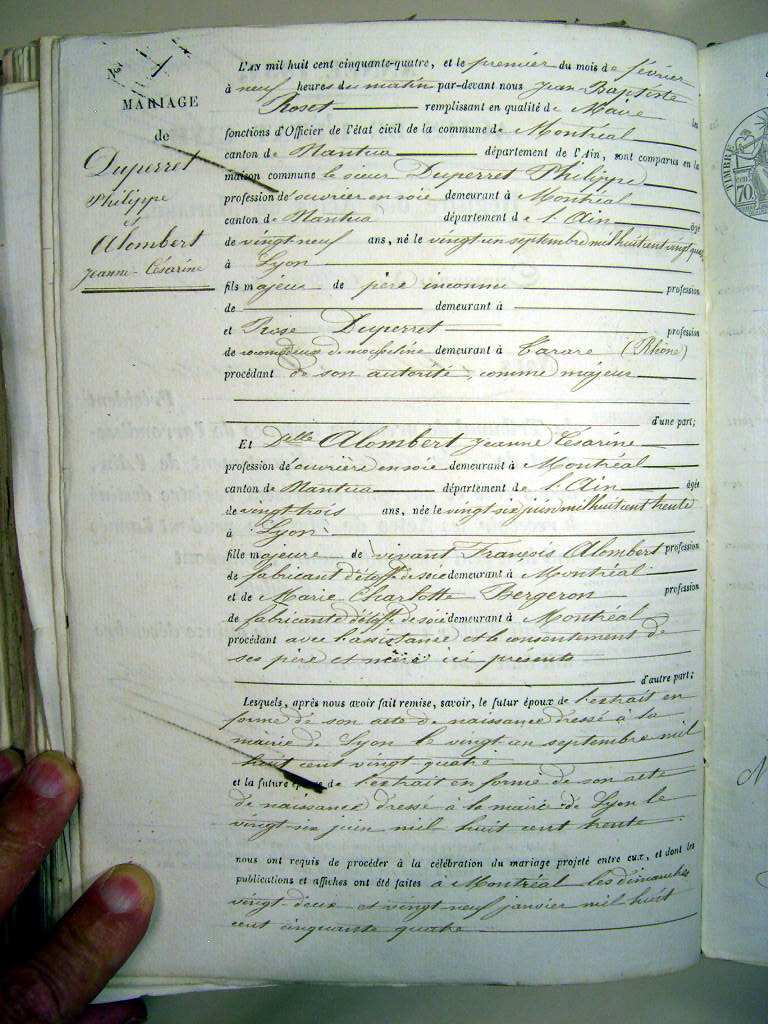 1
MARIAGE
de
Duperret
Philippe
et
Alombert
Jeanne-Césarine
L'AN mil huit cent cinquante-quatre, et le premier du mois de février
à neuf heures du matin par-devant nous Jean Baptiste
Roset remplissant en qualité de Maire les
fonctions d'Officier de l'état civil de la commune de Montréal
canton de Nantua département de l'Ain, sont comparus en la
maison commune le sieur Duperret Philippe
profession d'ouvrier en soie demeurant à Montréal
canton de Nantua département de l'Ain âgé
de vingt neuf ans, né le vingt un septembre mil huit cent vingt quatre
à Lyon
fils majeur de père inconnu profession
de demeurant à
et Rose Duperret profession
de demeurant à Tarare (Rhône)
procédant de son autorité, comme majeur
d'une part;
Et Delle Alombert Jeanne Césarine
profession d'ouvrière en soie demeurant à Montréal
canton de Nantua département de l'Ain âgée
de vingt trois ans, née le vingt six juin mil huit cent trente
à Lyon
fille majeure de vivant François Alombert profession
de fabricant d'étoffe de soie demeurant à Montréal
et de Marie Charlotte Bergeron profession
de fabricante d'étoffe de soie demeurant à Montréal
procédant avec l'assistance et le consentement de
ses père et mère ici présents
d'autre part;
Lesquels, après nous avoir fait remise, savoir, le futur époux de l'extrait en
forme de son acte de naissance dressé à la
mairie de Lyon le vingt un septembre mil
huit cent vingt quatre
et la future épouse de l'extrait en forme de son acte
de naissance dressé à la mairie de Lyon le
vingt six juin mil huit cent trente
nous ont requis de procéder à la célébration du mariage projeté entre eux, et dont les
publications et affiches ont été faites à Montréal les dimanches
vingt-deux et vingt neuf janvier mil huit
cent cinquante quatre
TIMBRE
70